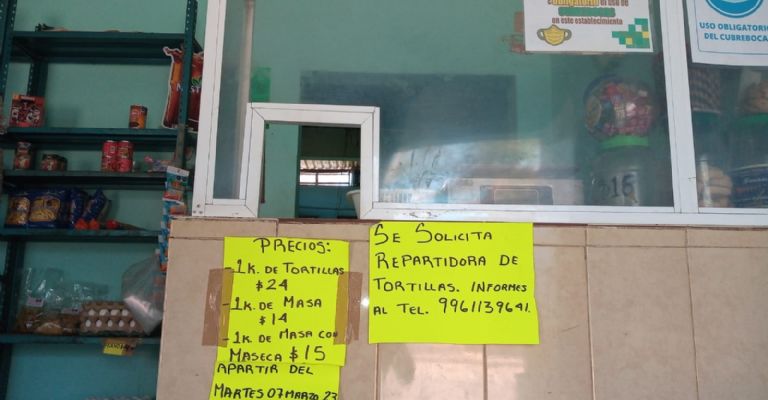 obligatorio el uso de
CUBREBOCAS
en este establecimiento
USO OBLIGATORIO
DEL CUBREBOCA
$16
PRECIOS:
-1K. DE TORTILLAS
$24
-1K. DE MASA
$14
-1K. DE MASA CON
MASECA $15
APARTIR DEL
MARTES 07 MARZO 23
SE SOLICITA
REPARTIDORA DE
TORTILLAS. INFORMES
AL TEL. 9961139641.